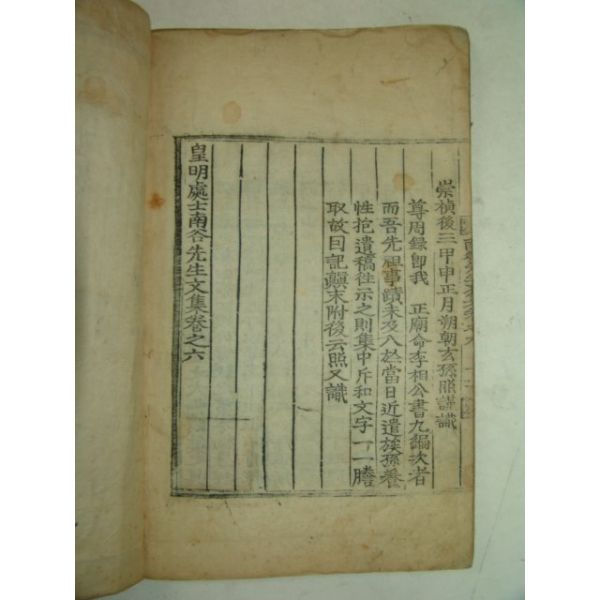 崇禎後三甲申正月朔朝玄孫照謹識
尊周錄卽我 正廟命李相公書九編次者
而吾先祖事蹟未及入於當日近遣族孫養
性抱遺稿徃示之則集中斥和文字一一謄
取故因記顚末附後云照又識
皇明處士南谷先生文集卷之六